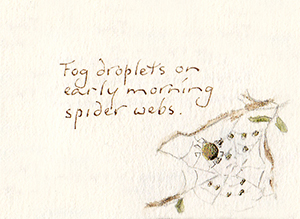 Fog droplets on
early morning
spider webs.